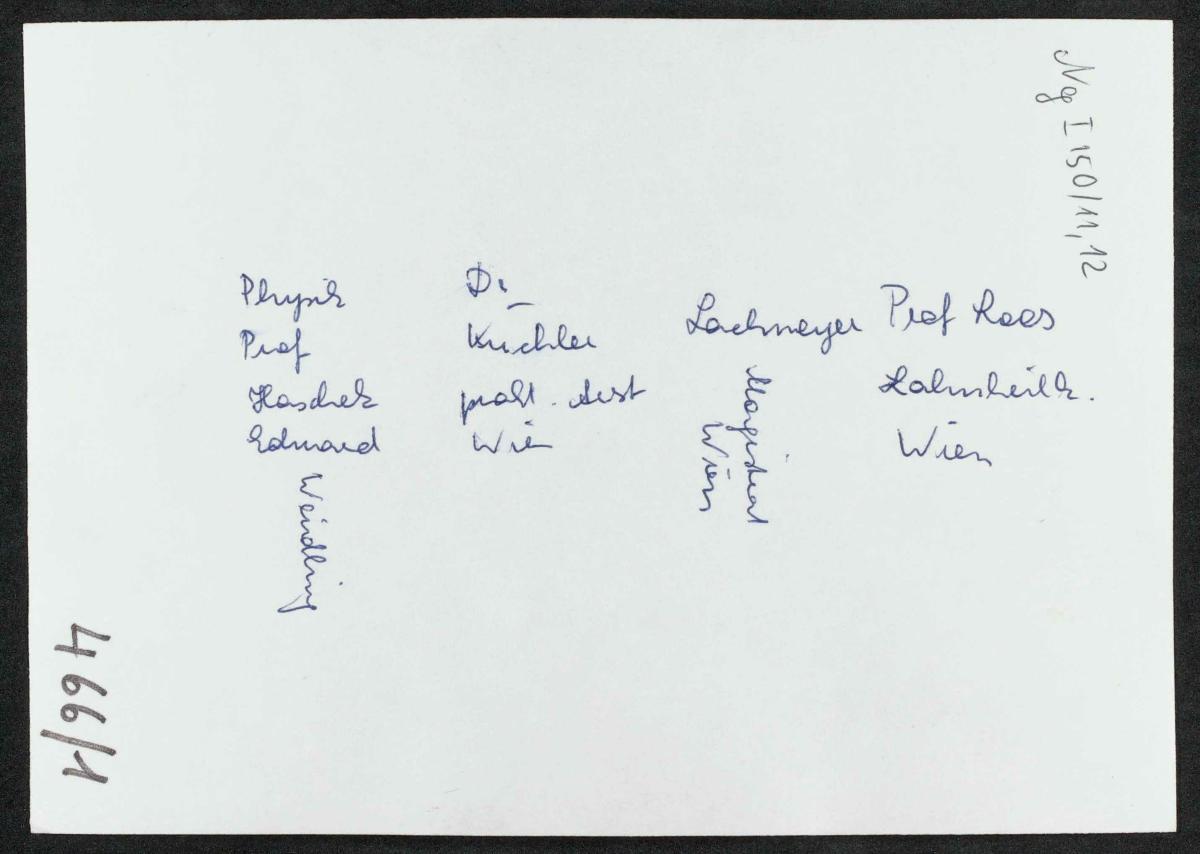 Neg I 150/11,12
Physik
Prof
Haschek
Eduard
Weidling
Dr
Kuchler
prakt. Arzt
Wien
Lachmayer
Magistrat
Wien
Prof Roos
Wien
466/1